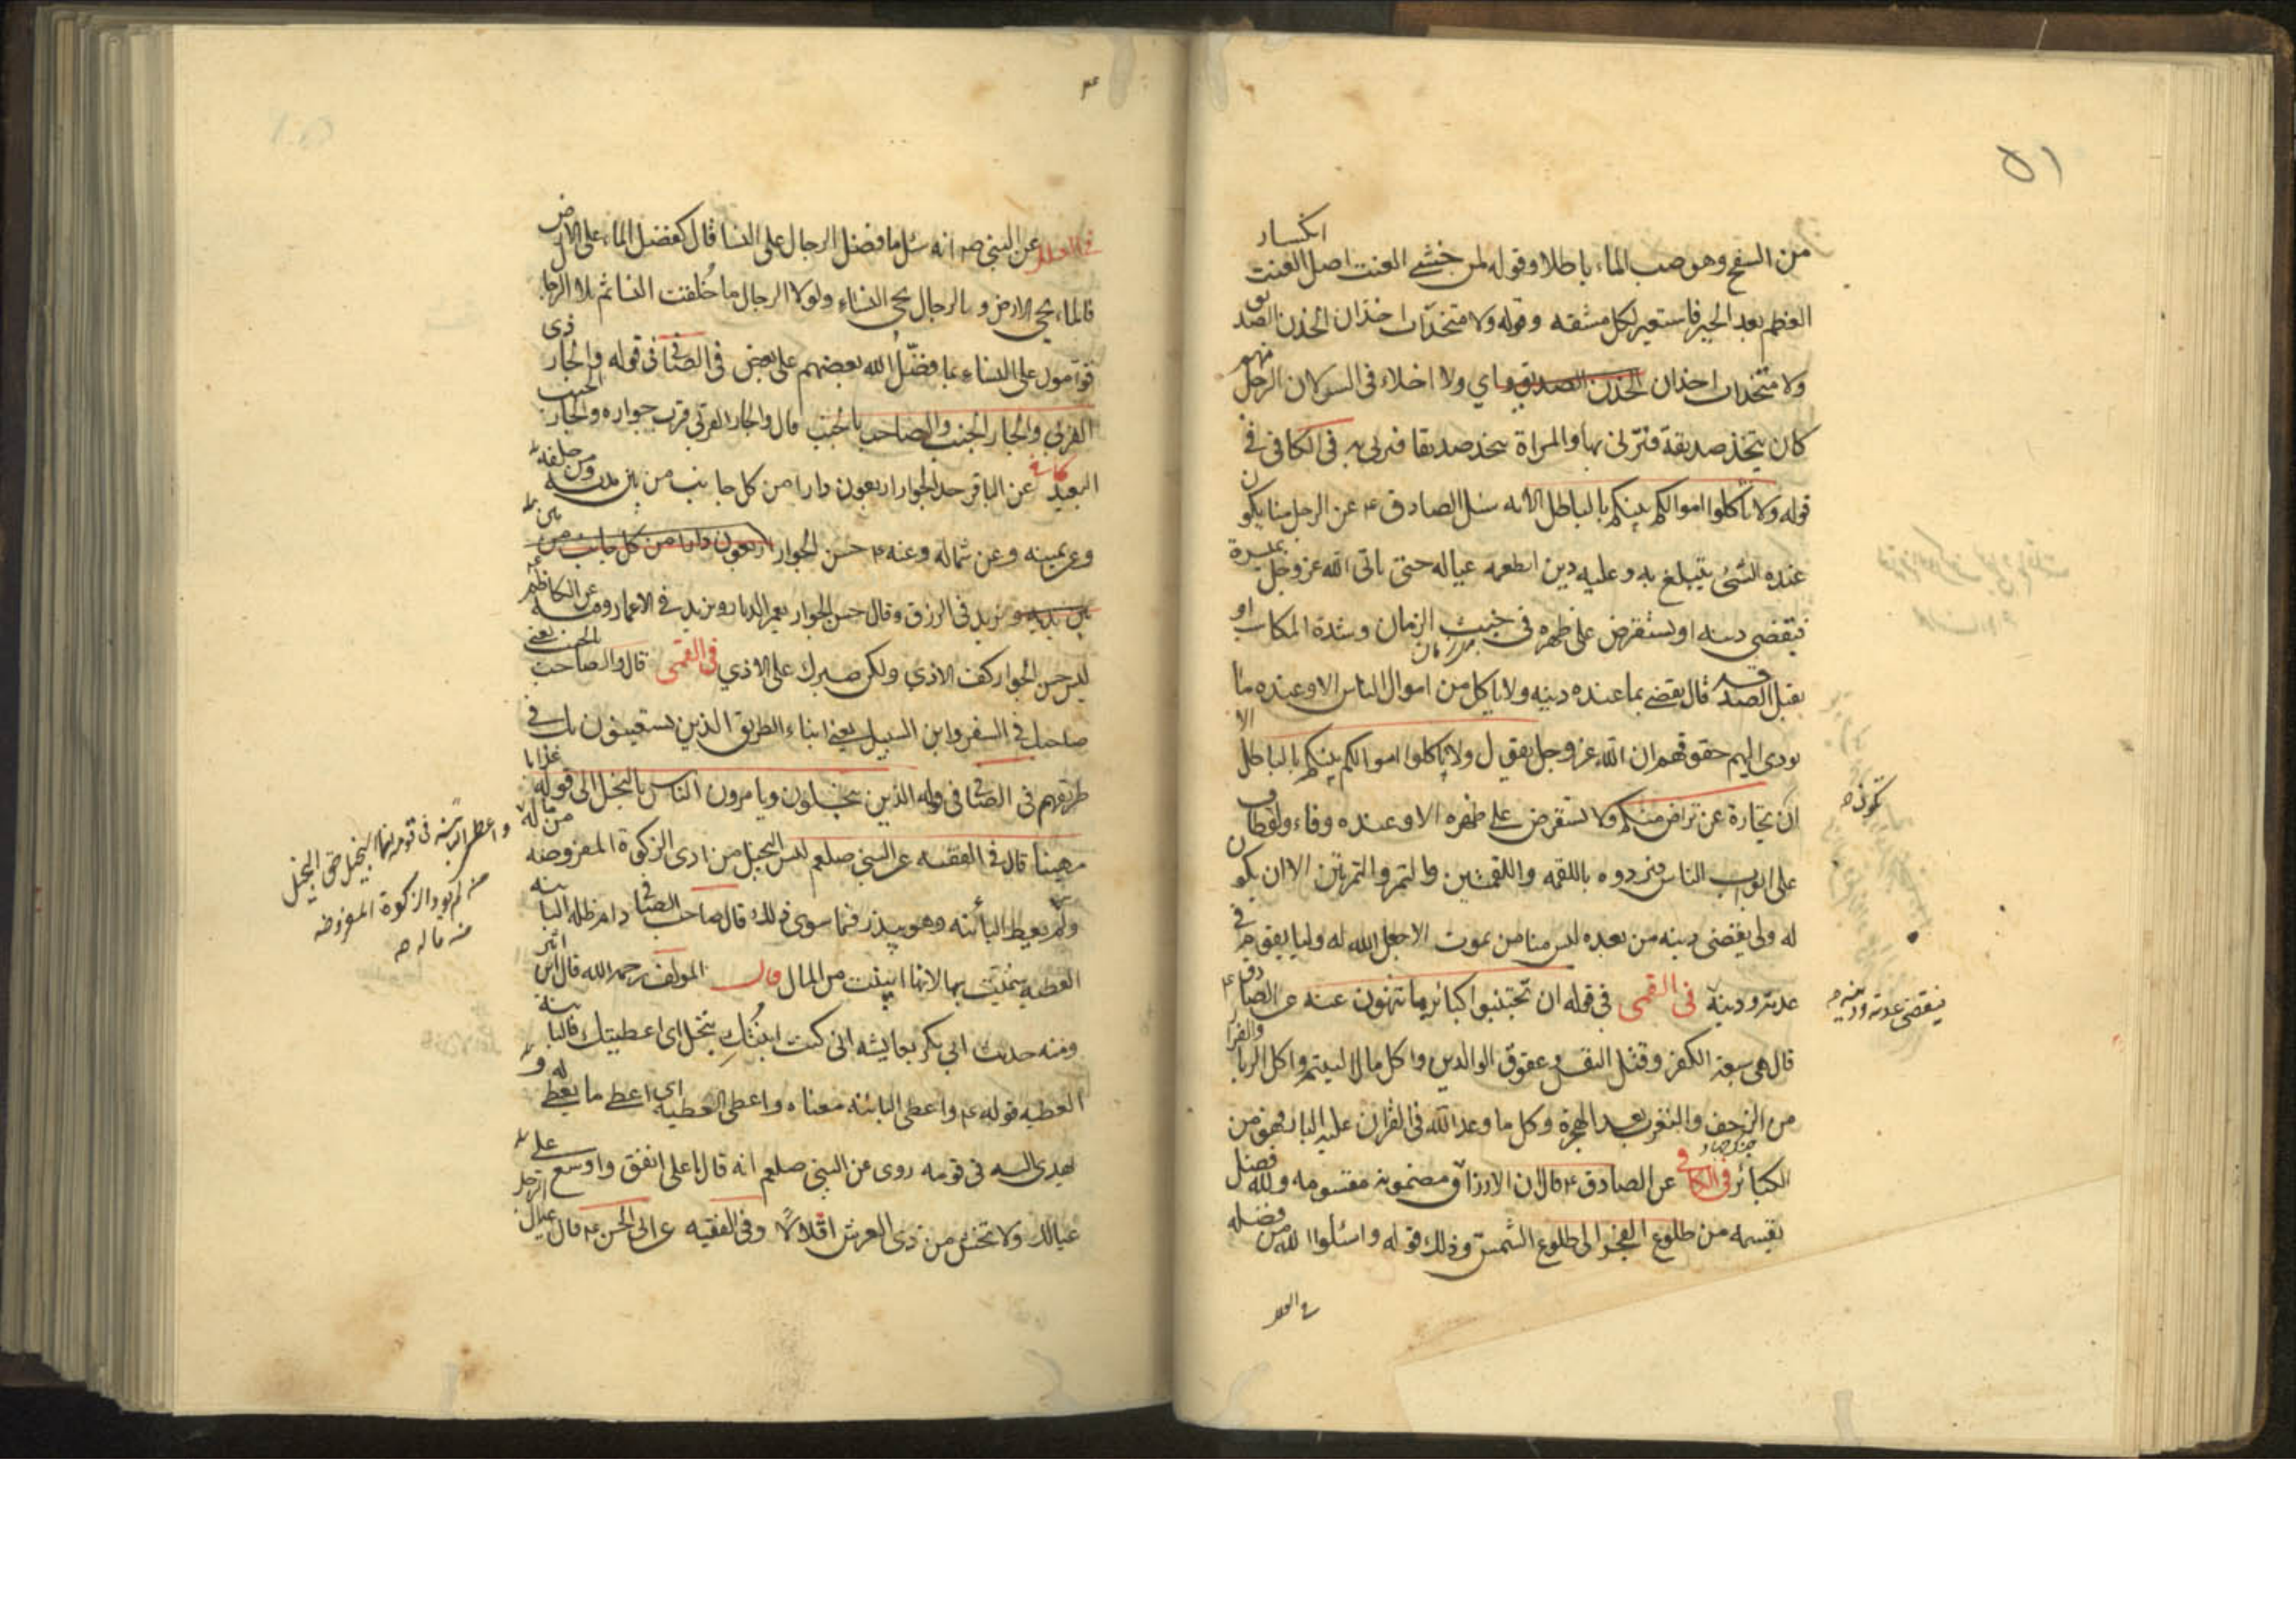 ٥١
من السفح وهو صب الماء باطلا وقوله لمن خشي العنت اصل العنت انكسار
العظم بعد الجبر فاستعير لكل مشقه وقوله ولا متخذات اخذان الخذن الصديق
ولا متخذات اخذان الخذن الصديق اي ولا اخلاء في السر لان الرجل منهم
كان يتخذ صديقة فتزني بها والمراة تتخذ صديقا فتزني به في الكافي في
قوله ولا تاكلوا اموالكم بينكم بالباطل الآيه سئل الصادق ع عن الرجل منا يكون
عنده الشئ يتبلغ به وعليه دين ايطعمه عياله حتى ياتي الله عز وجل بميسرة
فيقضي دينه او يستقرض على ظهره في خبث الزمان وشدة المكاسب او
يقبل الصدقه قال يقضي بما عنده دينه ولا ياكل من اموال الناس الا وعنده ما
يودي اليهم حقوقهم ان الله عز وجل يقول ولا تاكلوا اموالكم بينكم بالباطل الا
ان تجارة عن تراض منكم ولا يستقرض على ظهره الا وعنده وفاء ولو طاف
على ابواب الناس فردوه باللقمه واللقمتين والتمر والتمرتين الا ان يكون
له ولي يقضي دينه من بعده ليس منا من يموت الا جعل الله له وليا يقوم في
عدته ودينه في القمى في قوله ان تجتنبوا كبائر ما تنهون عنه عن الصادق ع
قال هي سبعة الكفر وقتل النفس وعقوق الوالدين واكل مال اليتيم واكل الربا والفرار
من الزحف والتعرب بعد الهجرة وكل ما وعد الله في القران عليه النار فهو من
الكبائر في الكافي عن الصادق ع قال ان الارزاق مضمونة مقسومه ولله فضل
يقسمه من طلوع الفجر الى طلوع الشمس وذلك قوله واسئلوا الله من فضله
تكون صه
فيقضي عدته ودينه صه
في العلل
في العلل عن النبي ص انه سئل ما فضل الرجال على النسا قال كفضل الماء على الارض
فالماء يحي الارض وبالرجال يحي النساء ولولا الرجال ما خلقت النسا ثم تلا الرجال
قوامون على النساء بما فضل الله بعضهم على بعض في الصافي في قوله والجار ذي
القربي والجار الجنب والصاحب بالجنب قال والجار القربى قرب جواره والجار الجنب
البعيد كافي عن الباقر حد الجوار اربعون دارا من كل جانب من بين يديه ومن خلفه
وعن يمينه وعن شماله وعنه ع حسن الجوار اربعون دارا من كل جانب من بين
يديه يزيد في الرزق وقال حسن الجوار يعمر الديار ويزيد في الاعمار وفيه عن الكاظم ع
ليس حسن الجوار كف الاذي ولكن صبرك على الاذي في القمى قال والصاحب بالجنب يعني
صاحبك في السفر وابن السبيل يعني ابناء الطريق الذين يستعينون بك في
طريقهم في الصافي في قوله الذين يبخلون ويامرون الناس بالبخل الى قوله عذابا
مهينا قال في الفقيه عن النبي صلعم ليس البخيل من ادى الزكوة المفروضه من ماله
ولم يعط البائنه وهو يبذر فيما سوى ذلك قال صاحب الصافي دام ظله البائنه
العطيه سميت بها لانها ابينت من المال قال المولف رحمه الله قال ابن اثير
ومنه حديث ابي بكر لعايشه اني كنت ابنتك بنحل اي اعطيتك فالبائنة
العطيه قوله ع واعطى البائنه معناه واعطى العطيه اي اعطى ما يعطي له و
يهدى اليه في قومه روى عن النبي صلعم انه قال يا على انفق واوسع على
عيالك ولا تخش من ذي العرش اقلالا وفي الفقيه عن ابي الحسن ع قال عيال الرجل
واعطى البائنه في قومه انما البخيل حق البخيل
من لم يود الزكوة المفروضه
من ماله صه